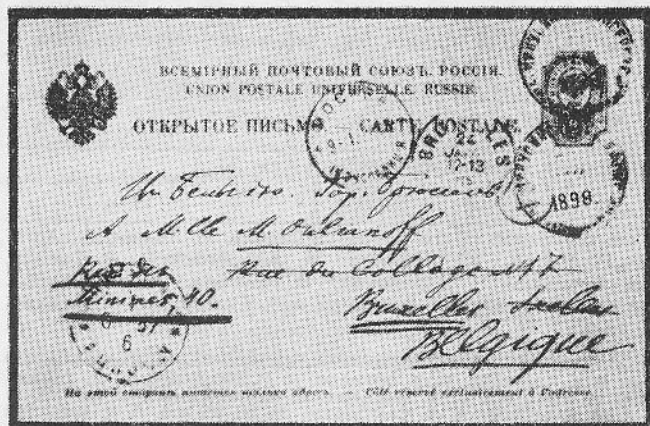 ВСЕМІРНЫЙ ПОЧТОВЫЙ СОЮЗЪ. РОССІЯ.
UNION POSTALE UNIVERSELLE. RUSSIE.
ОТКРЫТОЕ ПИСЬМО. CARTE POSTALE.
24
12-13
1898
Въ Бельгію. Гор. Брюссель
A M-lle M. Oulianoff
Rue des Rue du Collège №
Minimes, 40.
Bruxelles Ixelles
Belgique
6
На этой сторонѣ пишется только адресъ. — Côté réservé exclusivement à l'adresse.